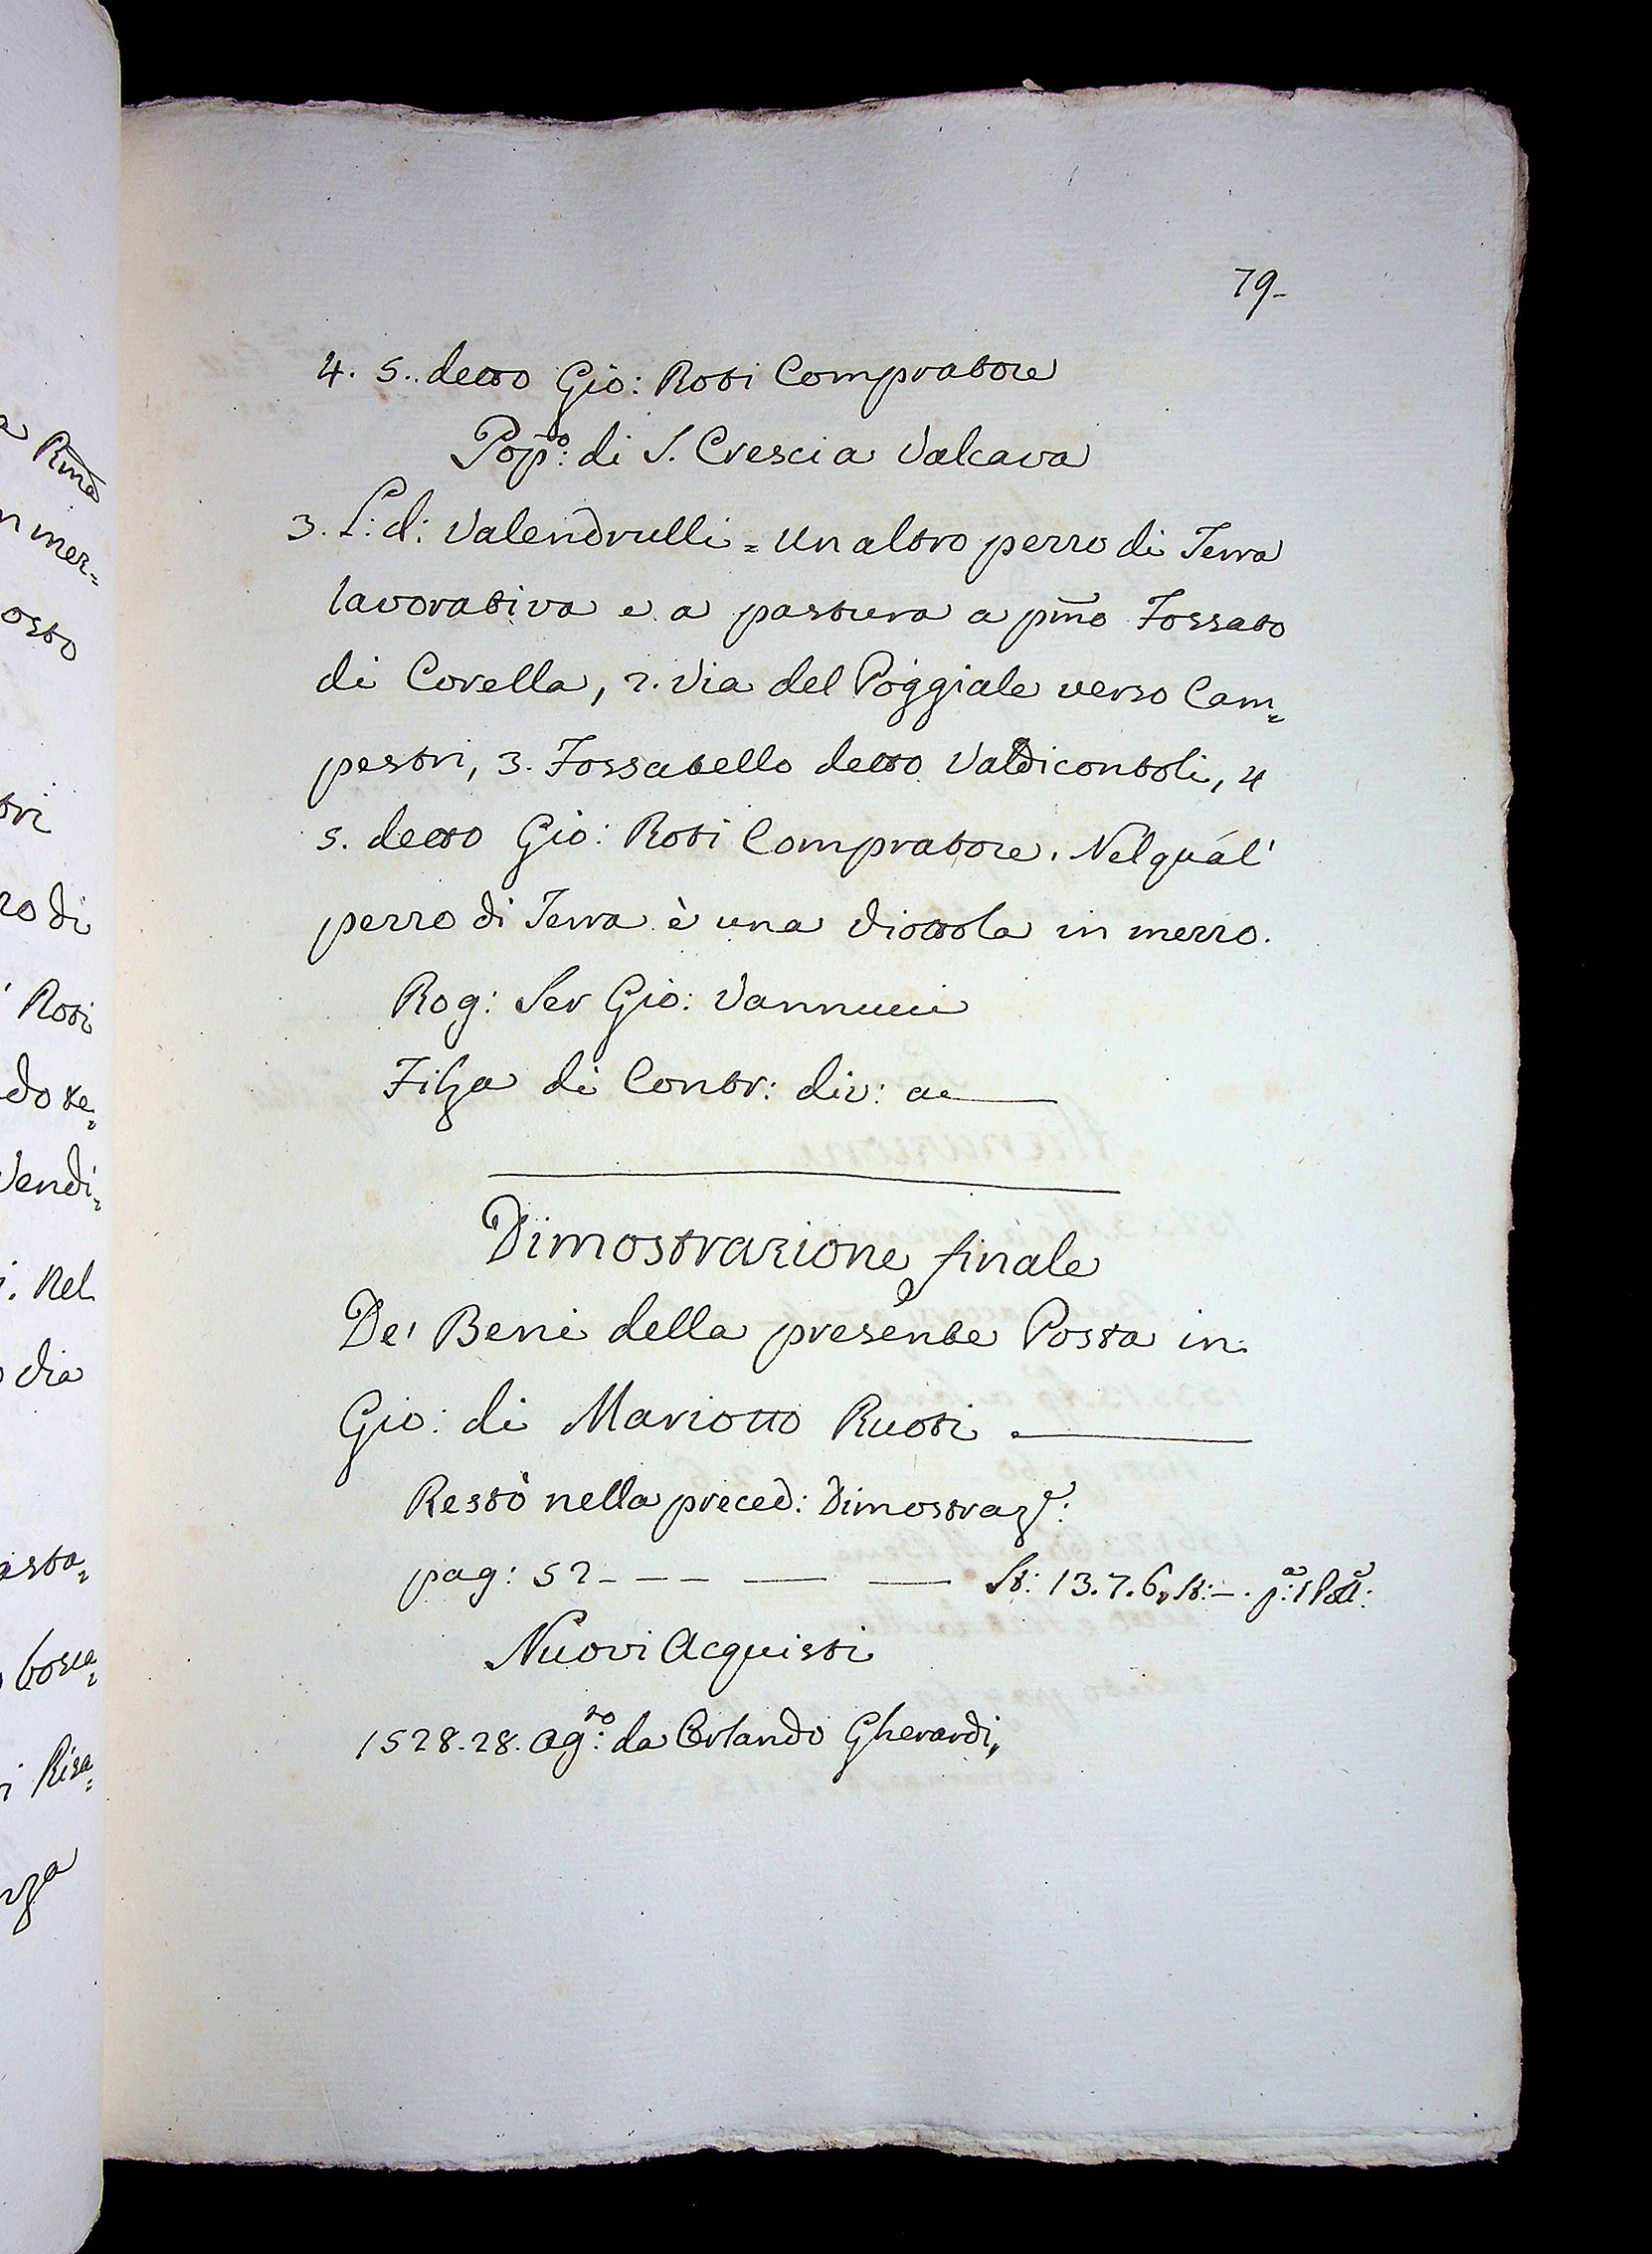 a Rmā
n mez=
osto
tri
zo di
i Roti
do te=
Vendi=
i. Nel
o Via
asta=
o bosca=
i Risa=
nza
79-
4. 5. detto Gio: Roti Compratore
Popō: di S. Crescia Valcava
3. L: d: Valendrulli = Un altro pezzo di Terra
lavorativa e a pastura a pm̄o Fossato
di Corella, 2. Via del Poggiale verso Cam=
pestri, 3. Fossatello detto Valdicontoli, 4
5. detto Gio: Roti Compratore. Nel qual'
pezzo di Terra è una Viottola in mezzo.
Rog: Ser Gio: Vannucci
Filza di Contr: div: ac
Dimostrazione finale
De' Beni della presente Posta in
Gio: di Mariotto Ruoti
Restò nella preced: Dimostrazᵉ:
pag: 52 - - - — — St: 13.7.6, St: -. p:
Nuovi Acquisti
1528. 28. Agᵗᵒ: da Orlando Gherardi,,